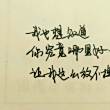 我也想知道
你究竟哪里好
让我这么放不